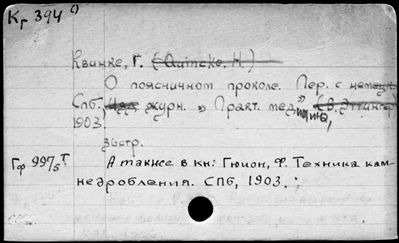 Кг 394
Квинке, Г. (Quincke, H.)
О поясничном проколе. Пер. с немецк.
Спб., Изд. журн. "Практ. медицина",
(В. Эттингер)
1903.
36стр.
Гф 997/5 Т А также в кн: Гюион, Ф. Техника кам-
недробления. СПб, 1903.